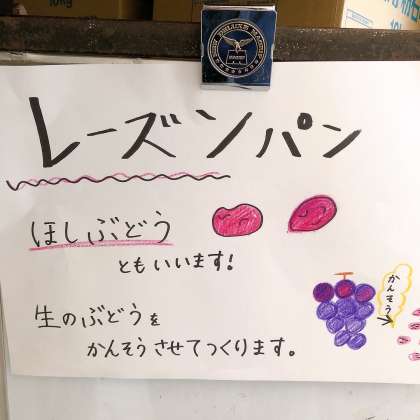 10kg
レーズンパン
ほしぶどう
ともいいます!
かんそう
生のぶどうを
かんそうさせてつくります。